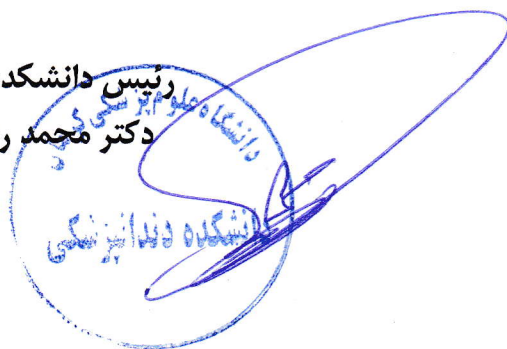 رئیس دانشکد
دکتر محمد ر
دانشگاه علوم پزشکی
دانشکده دندانپزشکی